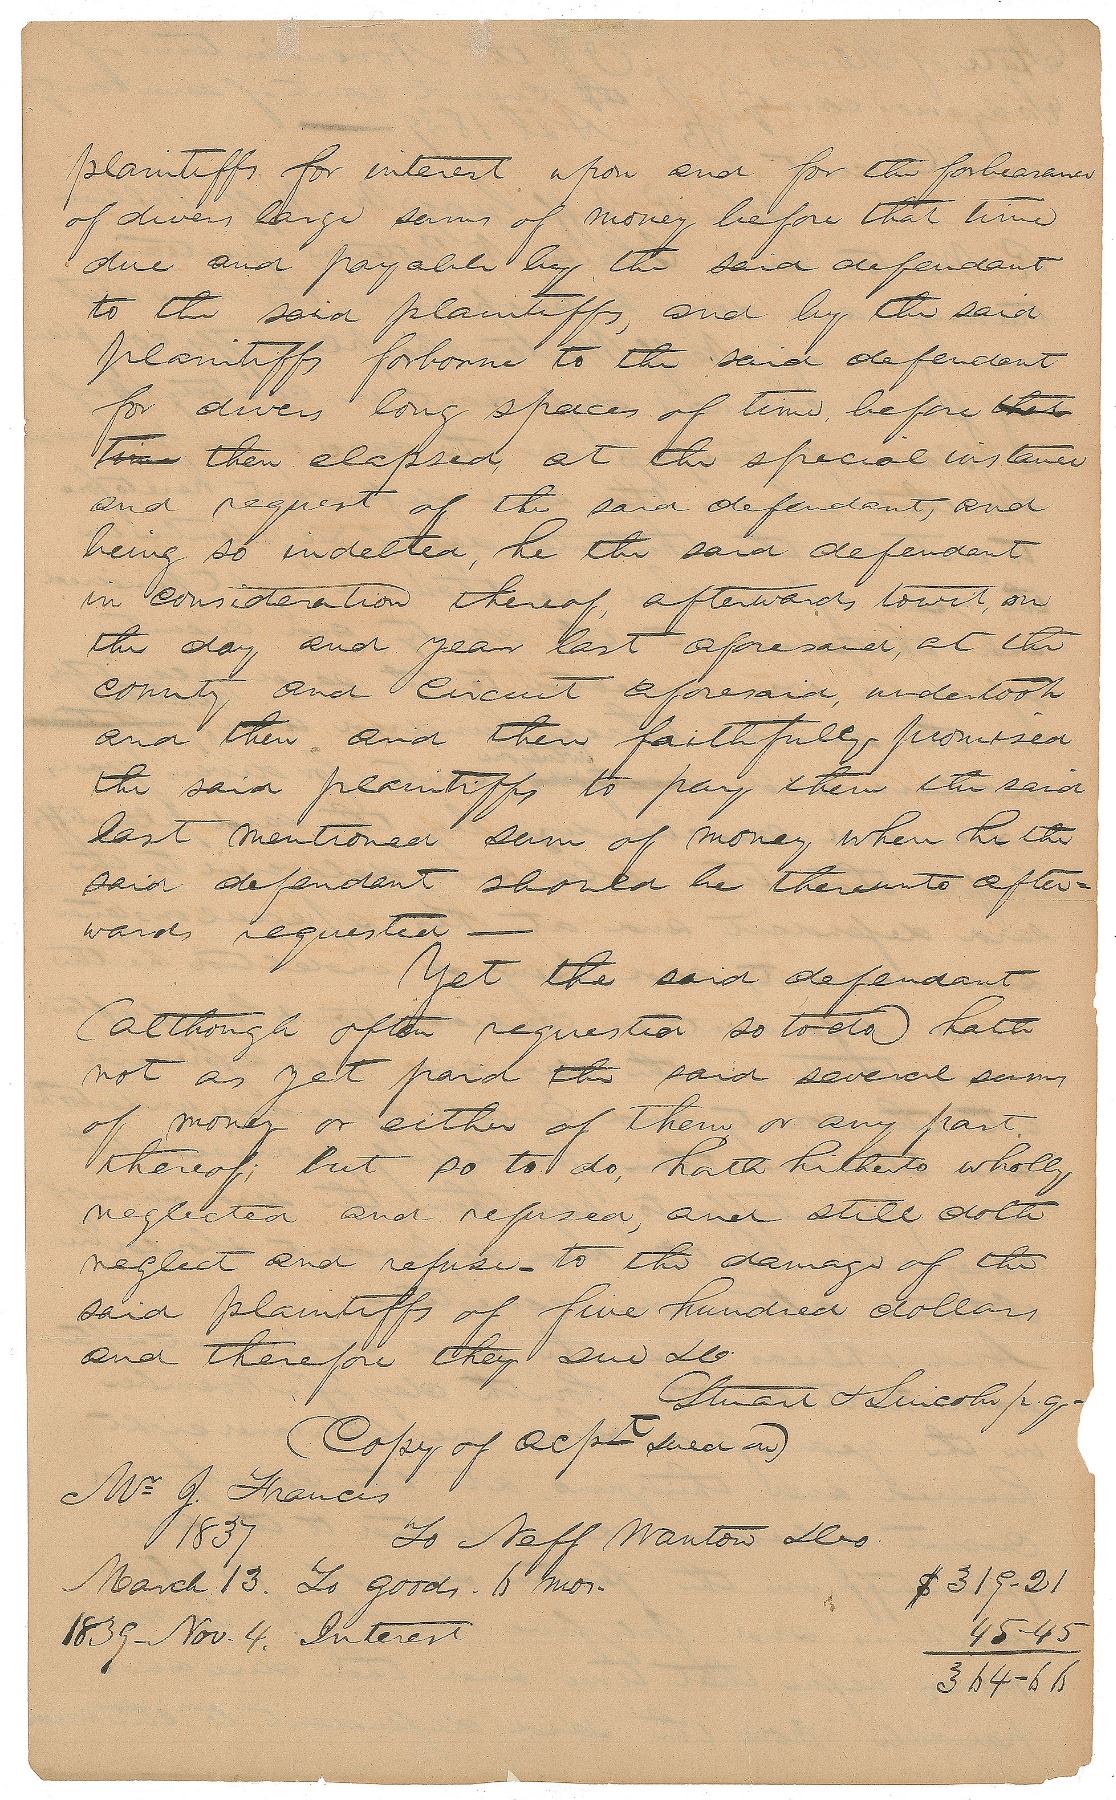 plaintiffs for interest upon and for the forbearance
of divers large sums of money before that time
due and payable by the said defendant
to the said plaintiffs, and by the said
plaintiffs forborne to the said defendant
for divers long spaces of time before that
time then elapsed, at the special instance
and request of the said defendant, and
being so indebted, he the said defendant
in consideration thereof, afterwards towit, on
the day and year last aforesaid, at the
county and Circuit aforesaid, undertook
and then and there faithfully promised
the said plaintiffs to pay them the said
last mentioned sum of money when he the
said defendant should be thereunto after=
wards requested —
Yet the said defendant
(although often requested so to do) hath
not as yet paid the said several sums
of money or either of them or any part
thereof; but so to do, hath hitherto wholly
neglected and refused, and still doth
neglect and refuse - to the damage of the
said plaintiffs of five hundred dollars
and therefore they sue &c
Stuart & Lincoln p. q-
(Copy of acpt sued on)
Mr J. Francis
1837 To Neff Wanton & Co
March 13. To goods. 6 mos. $319-21
1839- Nov. 4. Interest 45-45
364-66